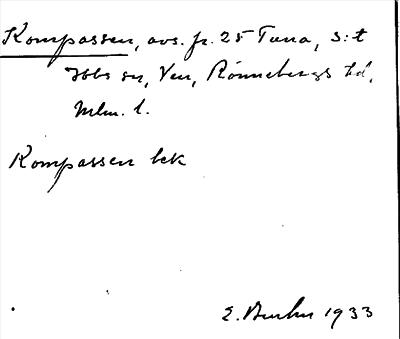 Kompassen, avs. fr. 25 Tuna, S:t
Ibbs sn, Ven, Rönnebergs hd,
Mlm. l.
Kompassen bek
E. 1933